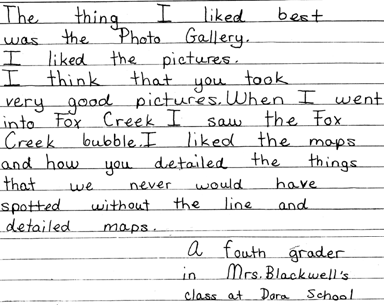 The thing I liked best
was the Photo Gallery.
I liked the pictures.
I think that you took
very good pictures. When I went
into Fox Creek I saw the Fox
Creek bubble. I liked the maps
and how you detailed the things
that we never would have
spotted without the line and
detailed maps.
a fouth grader
in Mrs. Blackwell's
class at Dora School